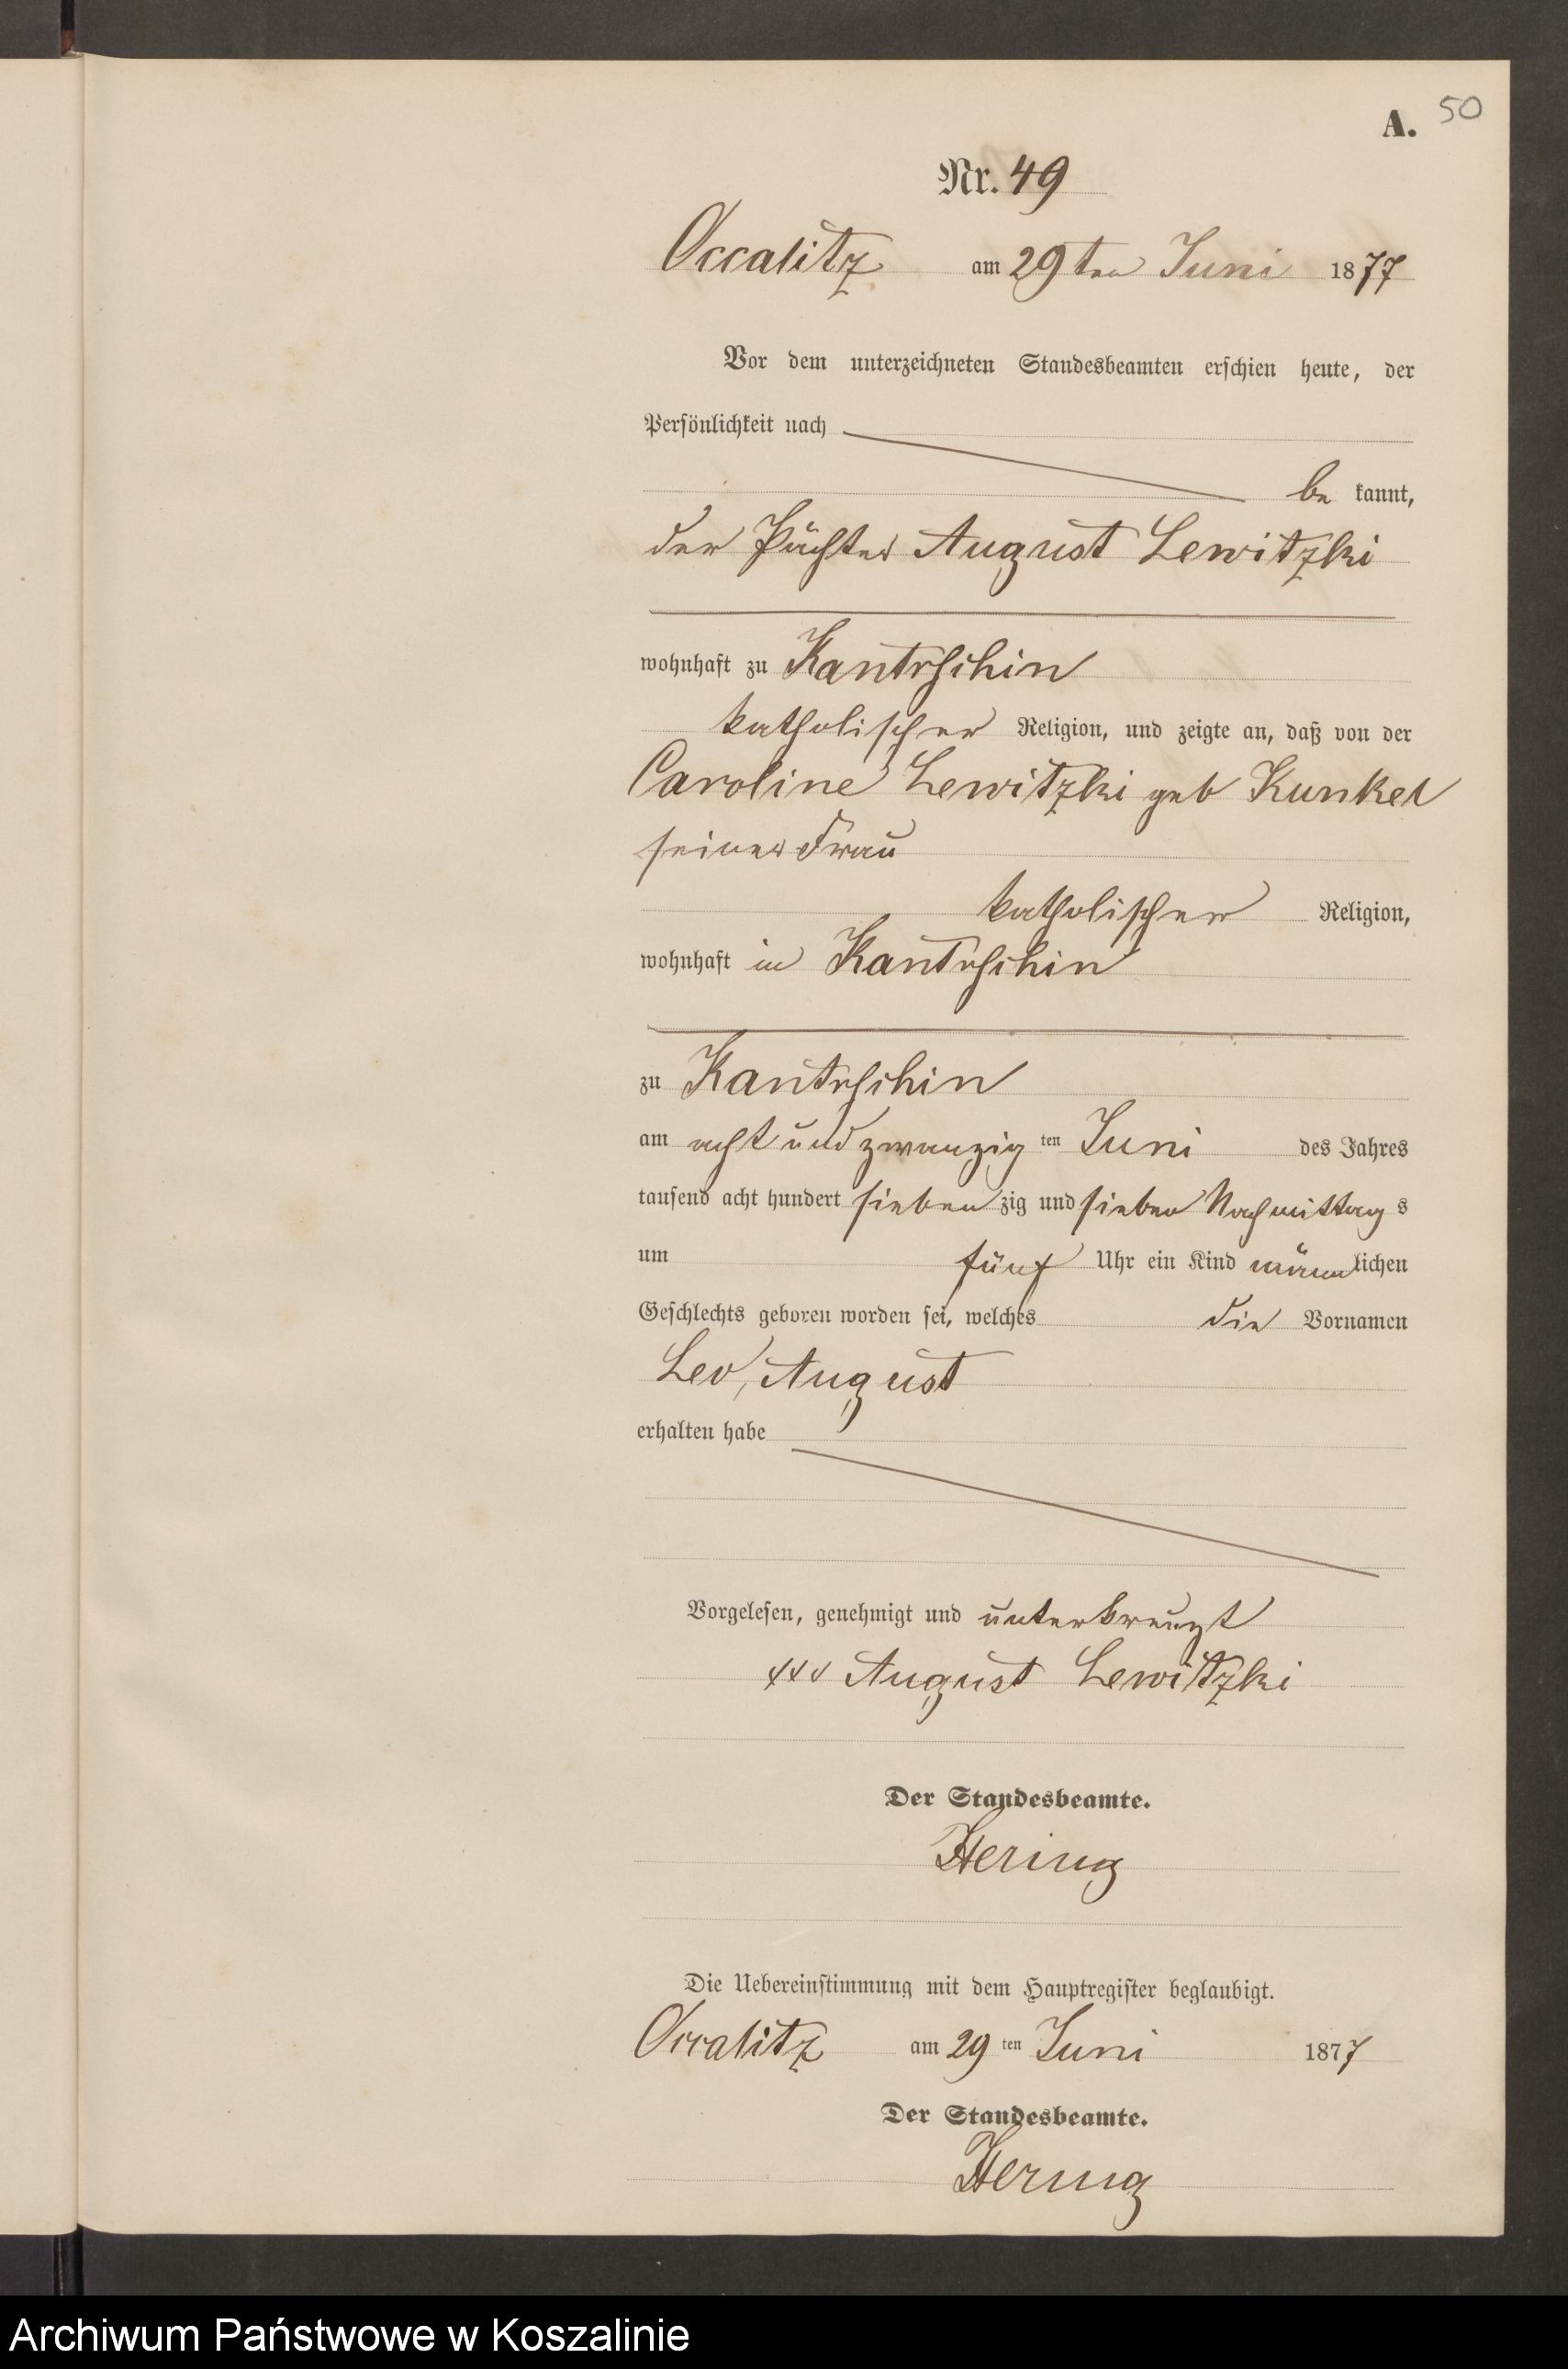 A. 50
Nr. 49
Occalitz am 29ten Juni 1877
Vor dem unterzeichneten Standesbeamten erschien heute, der
Persönlichkeit nach
be kannt,
der Pächter August Lewitzki
wohnhaft zu Kantrschin
katholischer Religion, und zeigte an, daß von der
Caroline Lewitzki geb Kunkel
seiner Frau
katholischer Religion,
wohnhaft in Kantrschin
zu Kantrschin
am acht und zwanzig ten Juni des Jahres
tausend acht hundert sieben zig und sieben Nachmittag s
um fünf Uhr ein Kind männlichen
Geschlechts geboren worden sei, welches die Vornamen
Leo, August
erhalten habe
Vorgelesen, genehmigt und unterkreuzt
xxx August Lewitzki
Der Standesbeamte.
Hering
Die Uebereinstimmung mit dem Hauptregister beglaubigt.
Occalitz am 29 ten Juni 1877
Der Standesbeamte.
Hering
Archiwum Państwowe w Koszalinie